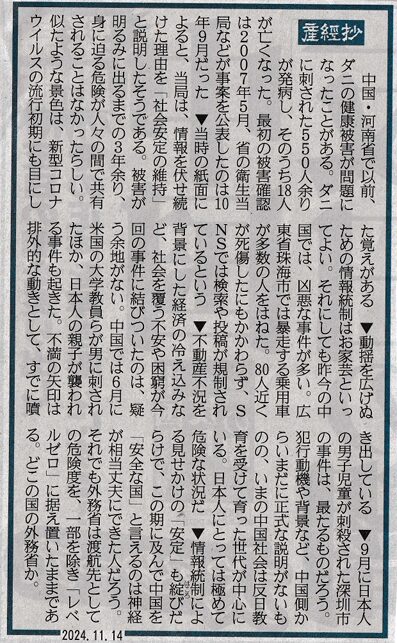 産経抄
中国・河南省で以前、
ダニの健康被害が問題に
なったことがある。ダニ
に刺された５５０人余り
が発病し、そのうち18人
が亡くなった。最初の被害確認
は２００７年５月、省の衛生当
局などが事案を公表したのは10
年９月だった　▼当時の紙面に
よると、当局は、情報を伏せ続
けた理由を「社会安定の維持」
と説明したそうである。被害が
明るみに出るまでの３年余り、
身に迫る危険が人々の間で共有
されることはなかったらしい。
似たような景色は、新型コロナ
ウイルスの流行初期にも目にし
た覚えがある　▼動揺を広げぬ
ための情報統制はお家芸といっ
てよい。それにしても昨今の中
国では、凶悪な事件が多い。広
東省珠海市では暴走する乗用車
が多数の人をはねた。80人近く
が死傷したにもかかわらず、Ｓ
ＮＳでは検索や投稿が規制され
ているという　▼不動産不況を
背景にした経済の冷え込みな
ど、社会を覆う不安や困窮が今
回の事件に結びついたのは、疑
う余地がない。中国では６月に
米国の大学教員らが男に刺され
たほか、日本人の親子が襲われ
る事件も起きた。不満の矢印は
排外的な動きとして、すでに噴
き出している　▼９月に日本人
の男子児童が刺殺された深圳市
の事件は、最たるものだろう。
犯行動機や背景など、中国側か
らいまだに正式な説明がないも
のの、いまの中国社会は反日教
育を受けて育った世代が中心に
いる。日本人にとっては極めて
危険な状況だ　▼情報統制によ
る見せかけの「安定」も綻びだ
らけで、この期に及んで中国を
「安全な国」と言えるのは神経
が相当丈夫にできた人だろう。
それでも外務省は渡航先として
の危険度を、一部を除き「レベ
ルゼロ」に据え置いたままであ
る。どこの国の外務省か。
2024.11.14